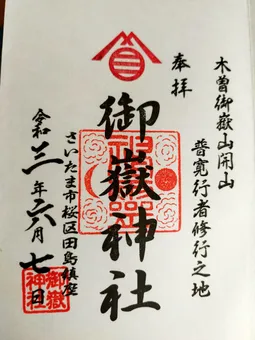 木曽御嶽山開山
普寛行者修行之地
奉拝
御嶽神社
さいたま市桜区田島鎮座
令和三年六月七日
御嶽
神社